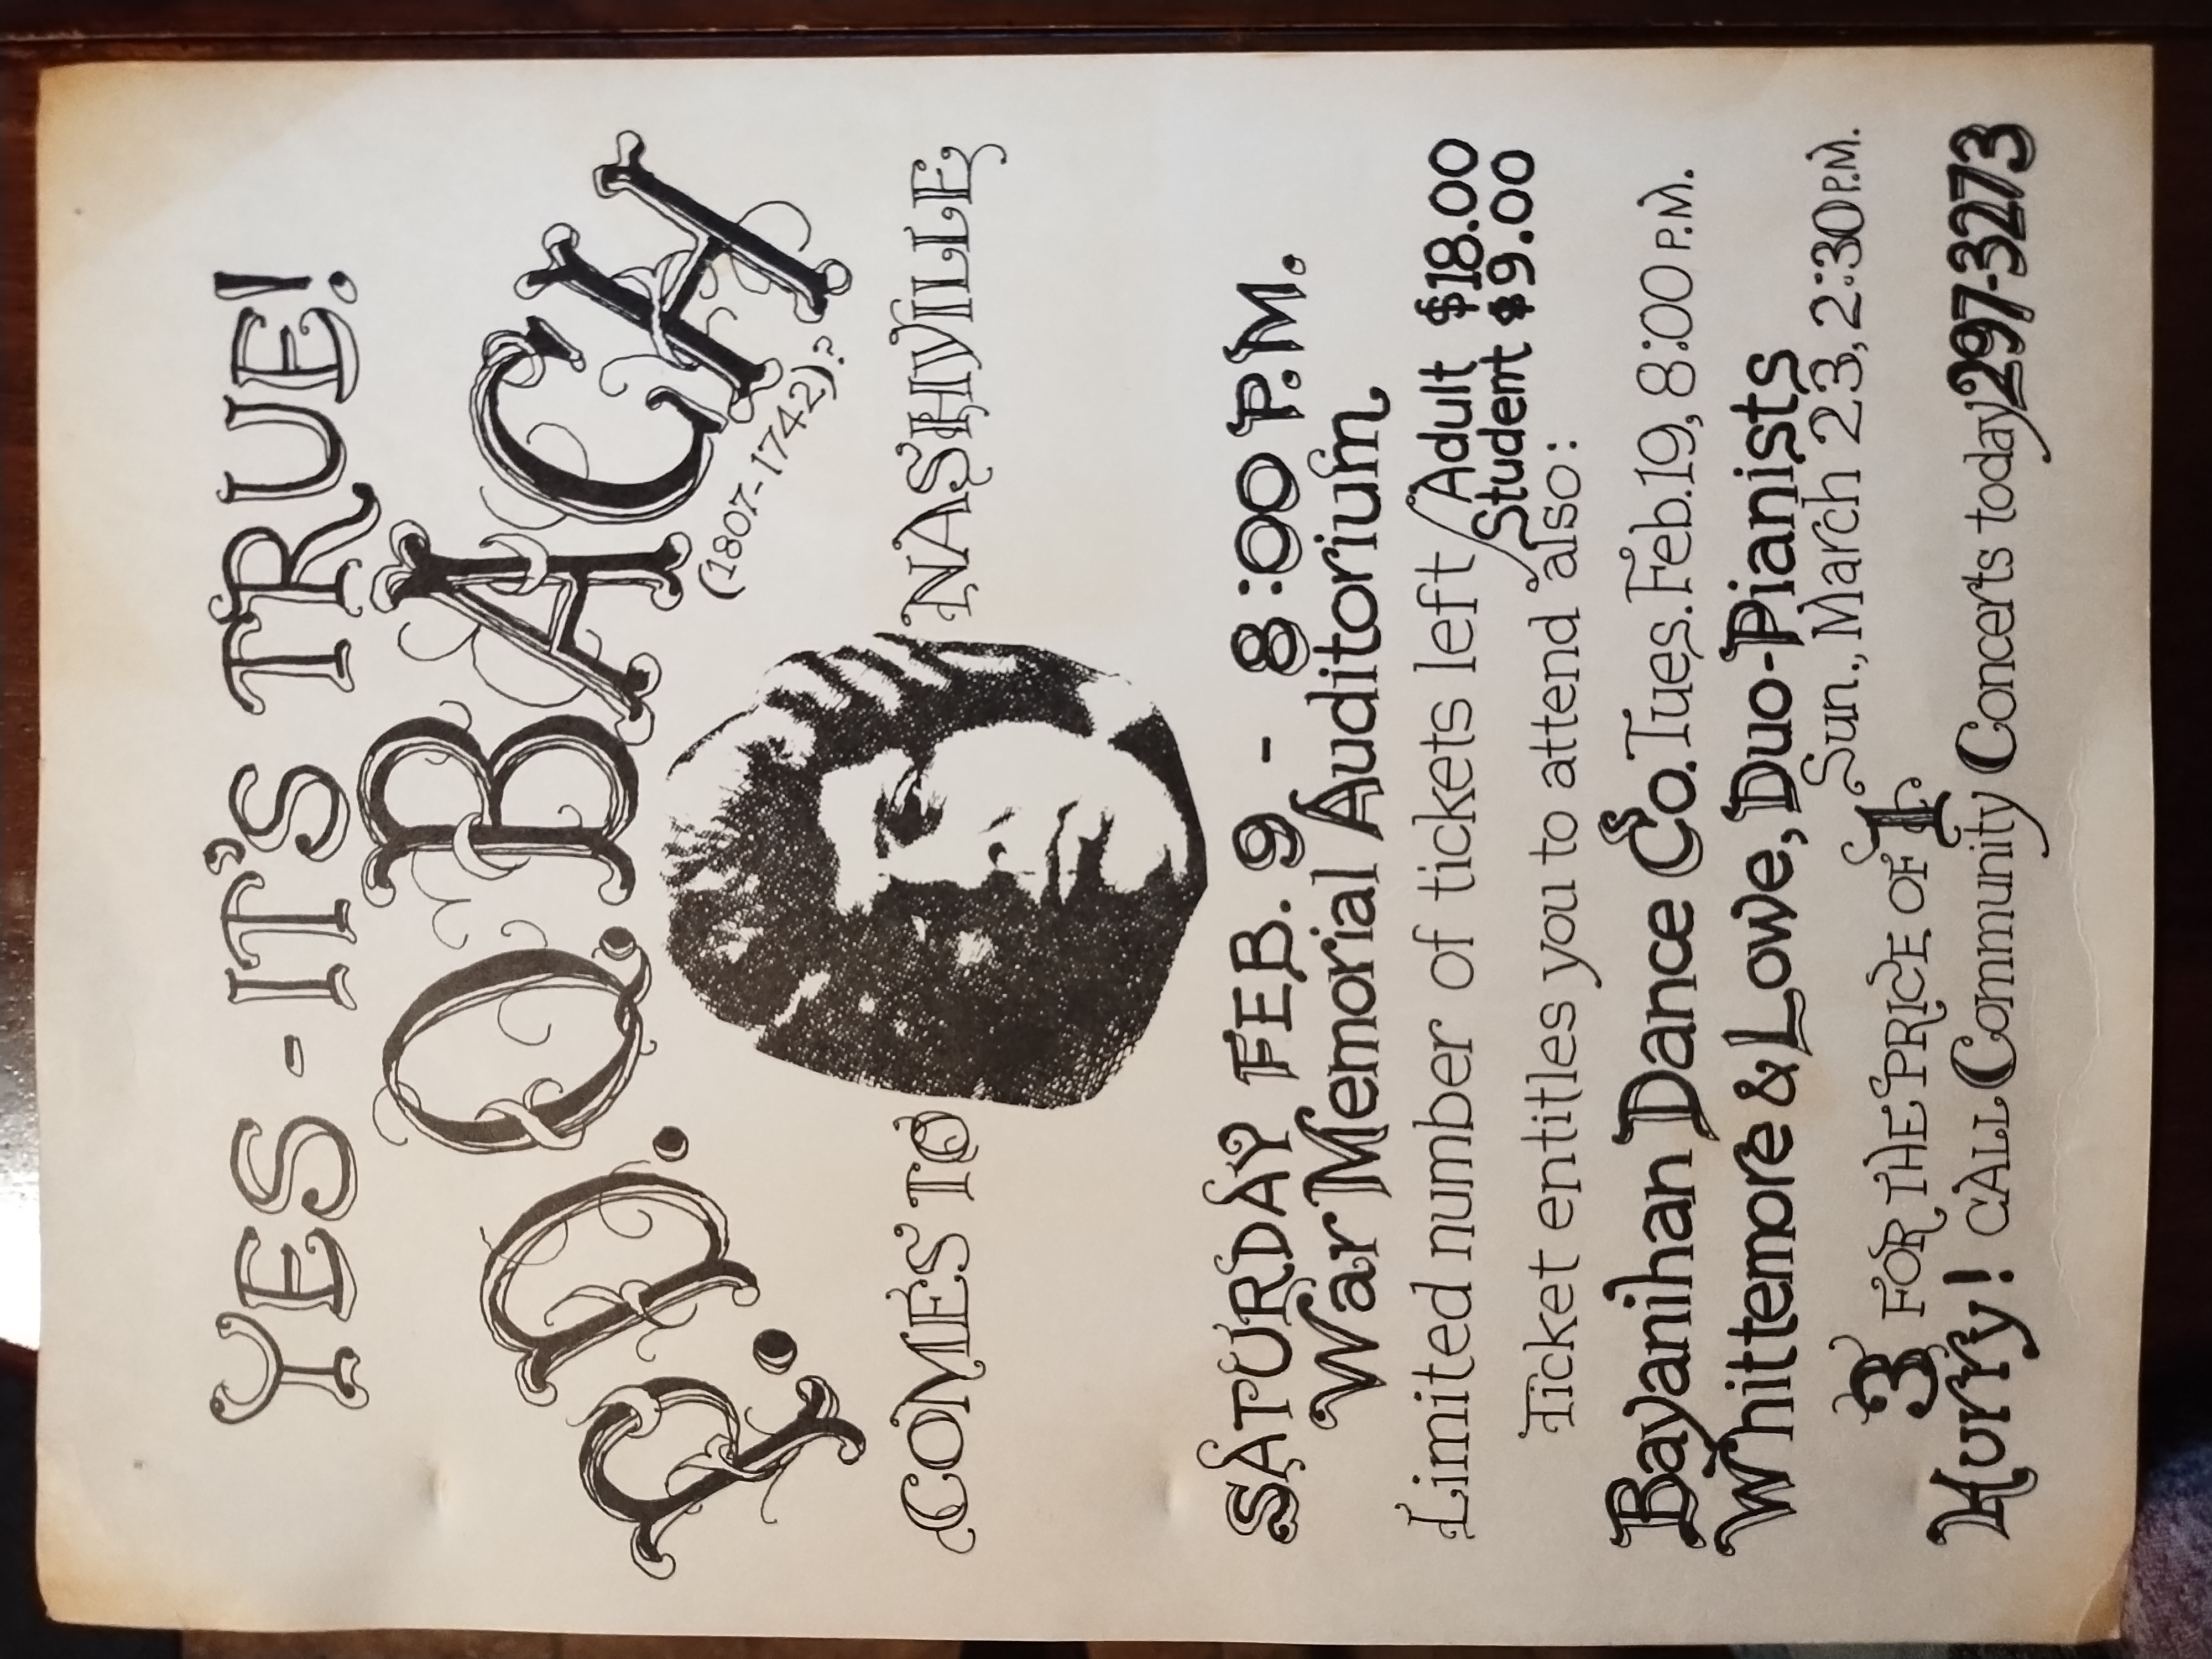 YES - IT'S TRUE!
P. D. Q. BACH
(1807-1742)?
COMES TO NASHVILLE
SATURDAY FEB. 9 - 8:00 P.M.
War Memorial Auditorium
Limited number of tickets left / Adult $18.00
Student $9.00
Ticket entitles you to attend also:
Bayanihan Dance Co. Tues. Feb. 19, 8:00 P.M.
Whittemore & Lowe, Duo-Pianists
Sun., March 23, 2:30 P.M.
3 FOR THE PRICE OF 1
Hurry! CALL Community Concerts today 297-3273